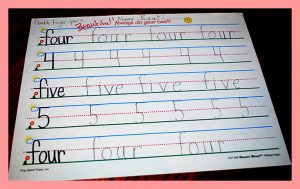 Beautiful! Always do your best!
four four four four
4 4 4 4 4 4
five five five five
5 5 5 5 5 5
four four four